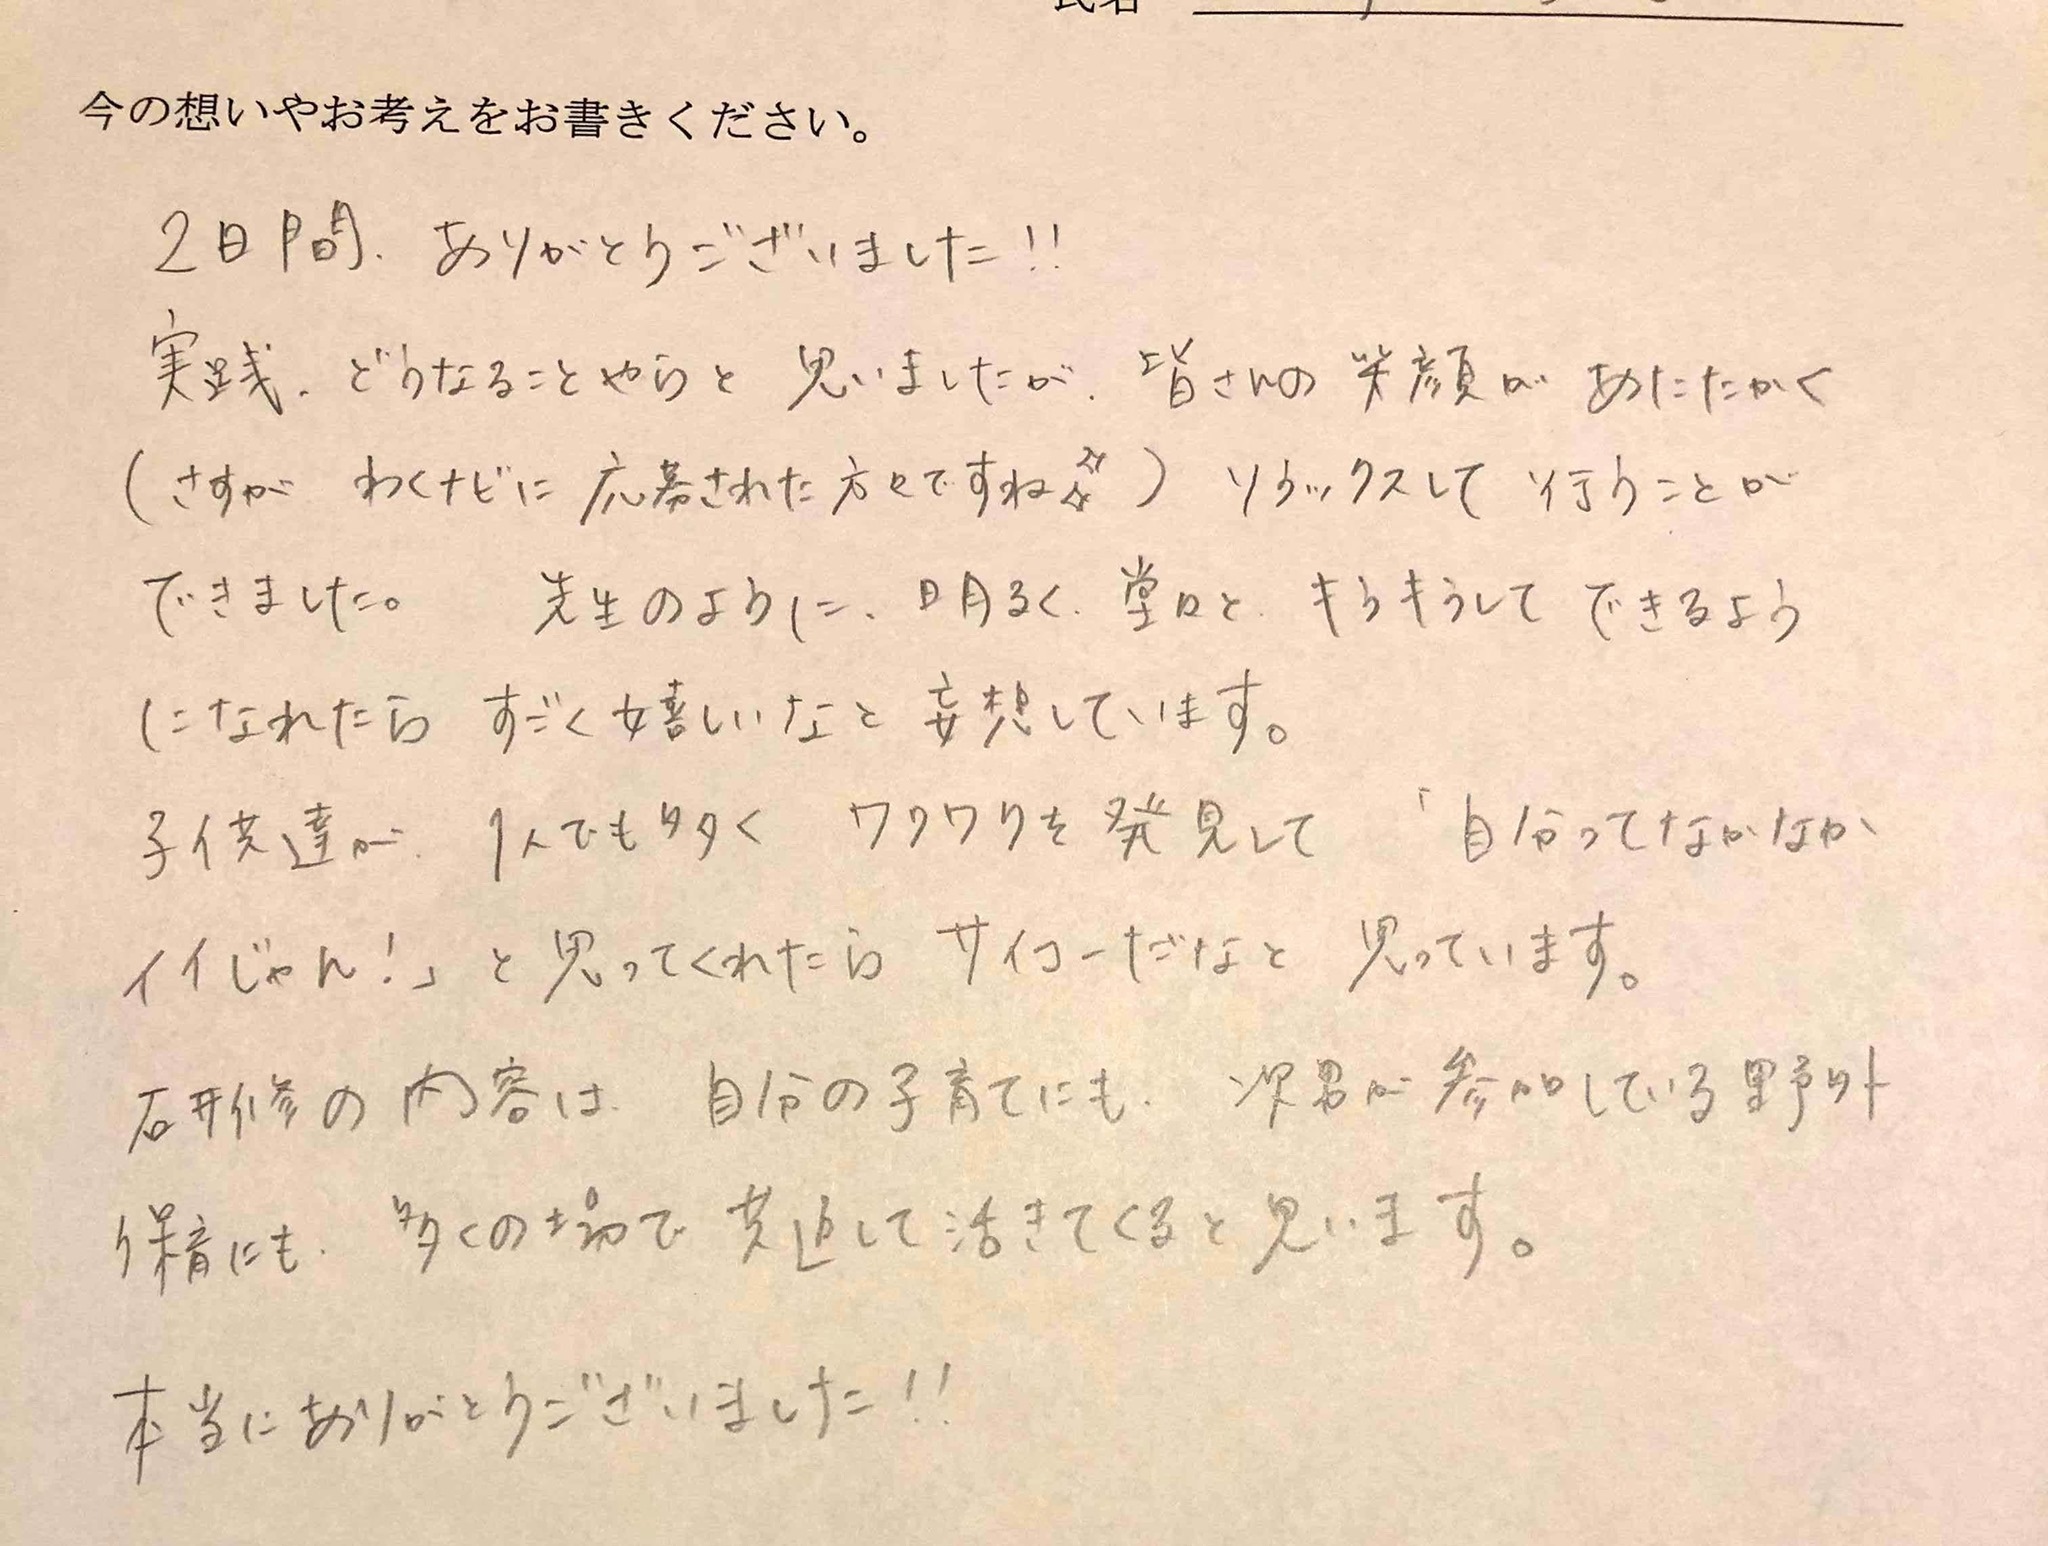 氏名
今の想いやお考えをお書きください。
2日間、ありがとうございました!!
実践、どうなることやらと思いましたが、皆さんの笑顔があたたかく
(さすが わくナビに応募された方々ですね) リラックスして行うことが
できました。 先生のように、明るく、堂々と、キラキラして できるよう
になれたら すごく嬉しいなと 妄想しています。
子供達が、1人でも多く ワクワクを発見して 「自分ってなかなか
イイじゃん!」と思ってくれたら サイコーだなと 思っています。
研修の内容は、自分の子育てにも、次男が参加している野外
保育にも、多くの場で共通して活きてくると思います。
本当にありがとうございました!!